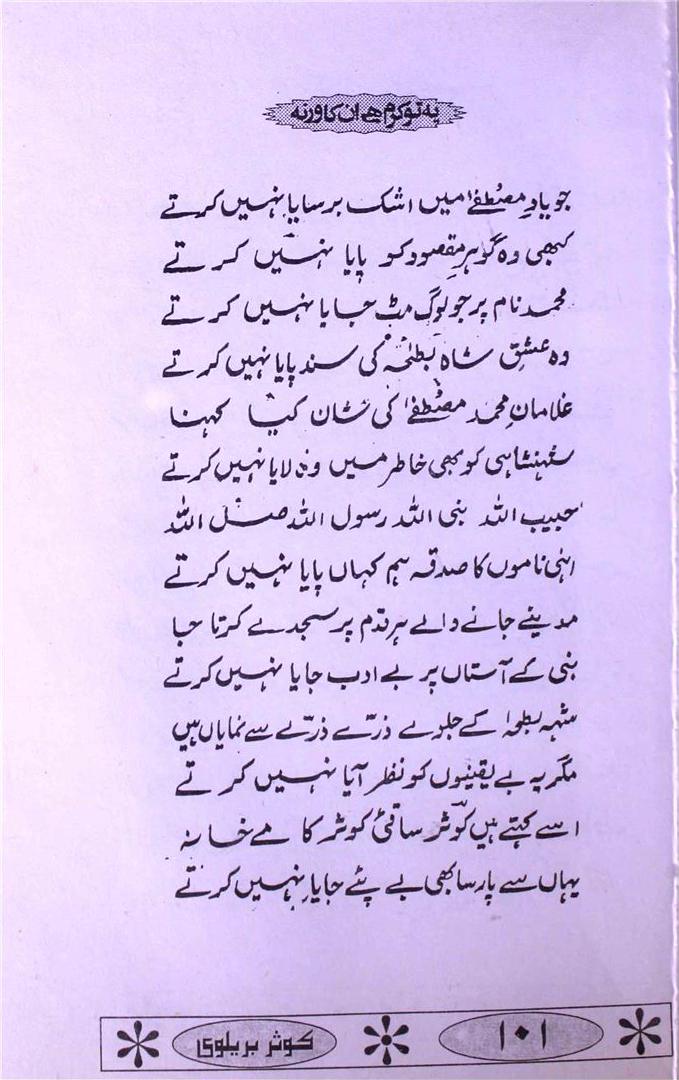 یہ تو کرم ہے ان کا ورنہ
جو یادِ مصطفےٰ میں اشک برسایا نہیں کرتے
کبھی وہ گوہرِ مقصود کو پایا نہیں کرتے
محمد نام پر جو لوگ مٹ جایا نہیں کرتے
وہ عشقِ شاہِ بطحٰہ کی سند پایا نہیں کرتے
غلامانِ محمد مصطفےٰ کی شان کیا کہنا
شہنشاہی کو بھی خاطر میں وہ لایا نہیں کرتے
حبیب اللہ نبی اللہ رسول اللہ صلِ اللہ
انہی ناموں کا صدقہ ہم کہاں پایا نہیں کرتے
مدینے جانے والے ہر قدم پر سجدے کرتا جا
نبی کے آستاں پر بے ادب جایا نہیں کرتے
شہہ بطحٰہ کے جلوے ذرّے ذرّے سے نمایاں ہیں
مگر یہ بے یقینوں کو نظر آیا نہیں کرتے
اسے کہتے ہیں کوثر ساقیٔ کوثر کا مے خانہ
یہاں سے پارسا بھی بے پئے جایا نہیں کرتے
۱۰۱ کوثر بریلوی